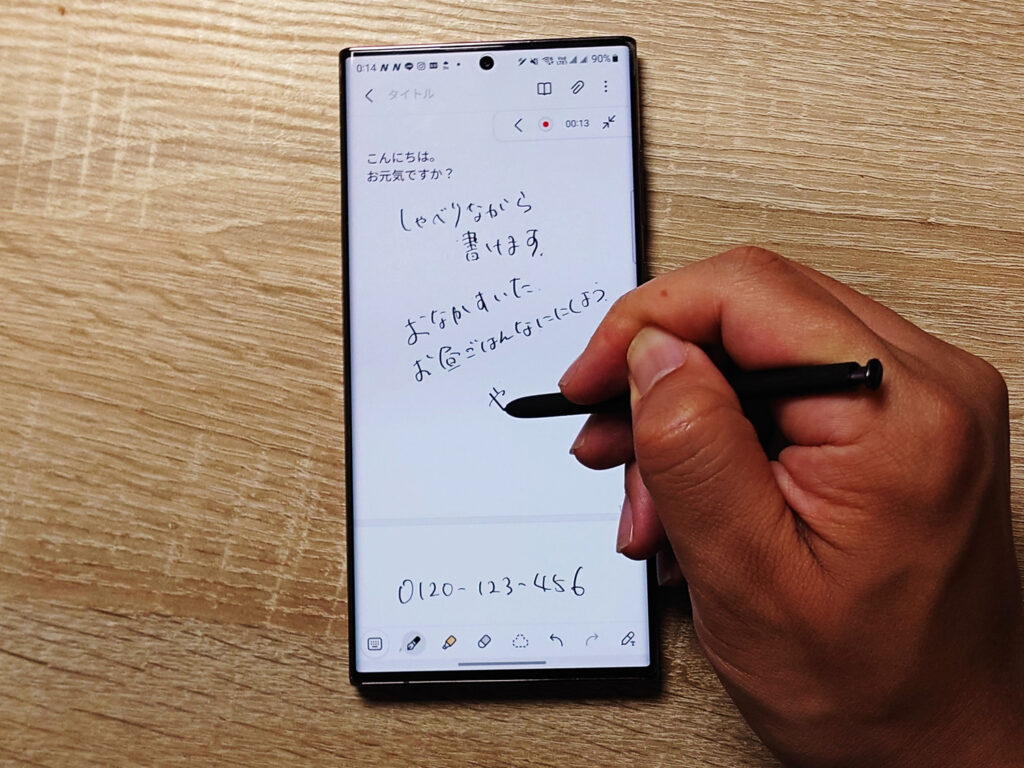 0:14 90%
タイトル
00:13
こんにちは。
お元気ですか?
しゃべりながら
書けます。
おなかすいた。
お昼ごはんなににしよう。
や
0120-123-456